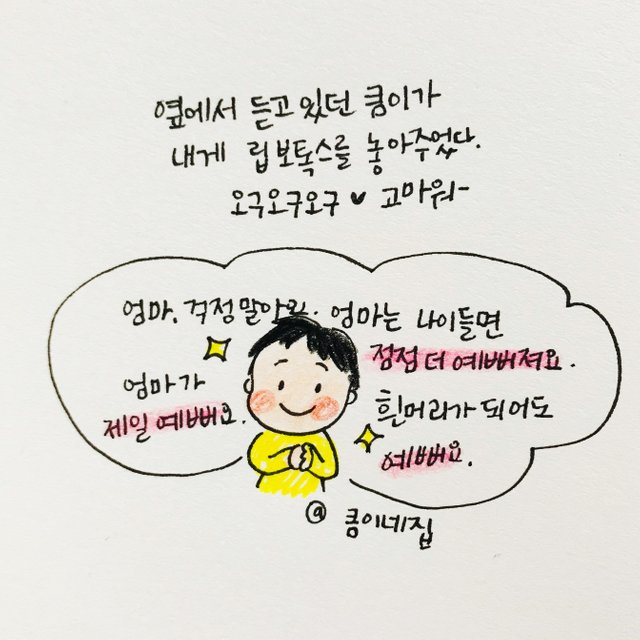 옆에서 듣고 있던 쿵이가
내게 립보톡스를 놓아주었다.
오구오구오구 ♥ 고마워-
엄마. 걱정말아요. 엄마는 나이들면
점점 더 예뻐져요.
엄마가
제일 예뻐요.
흰머리가 되어도
예뻐요.
@ 쿵이네집